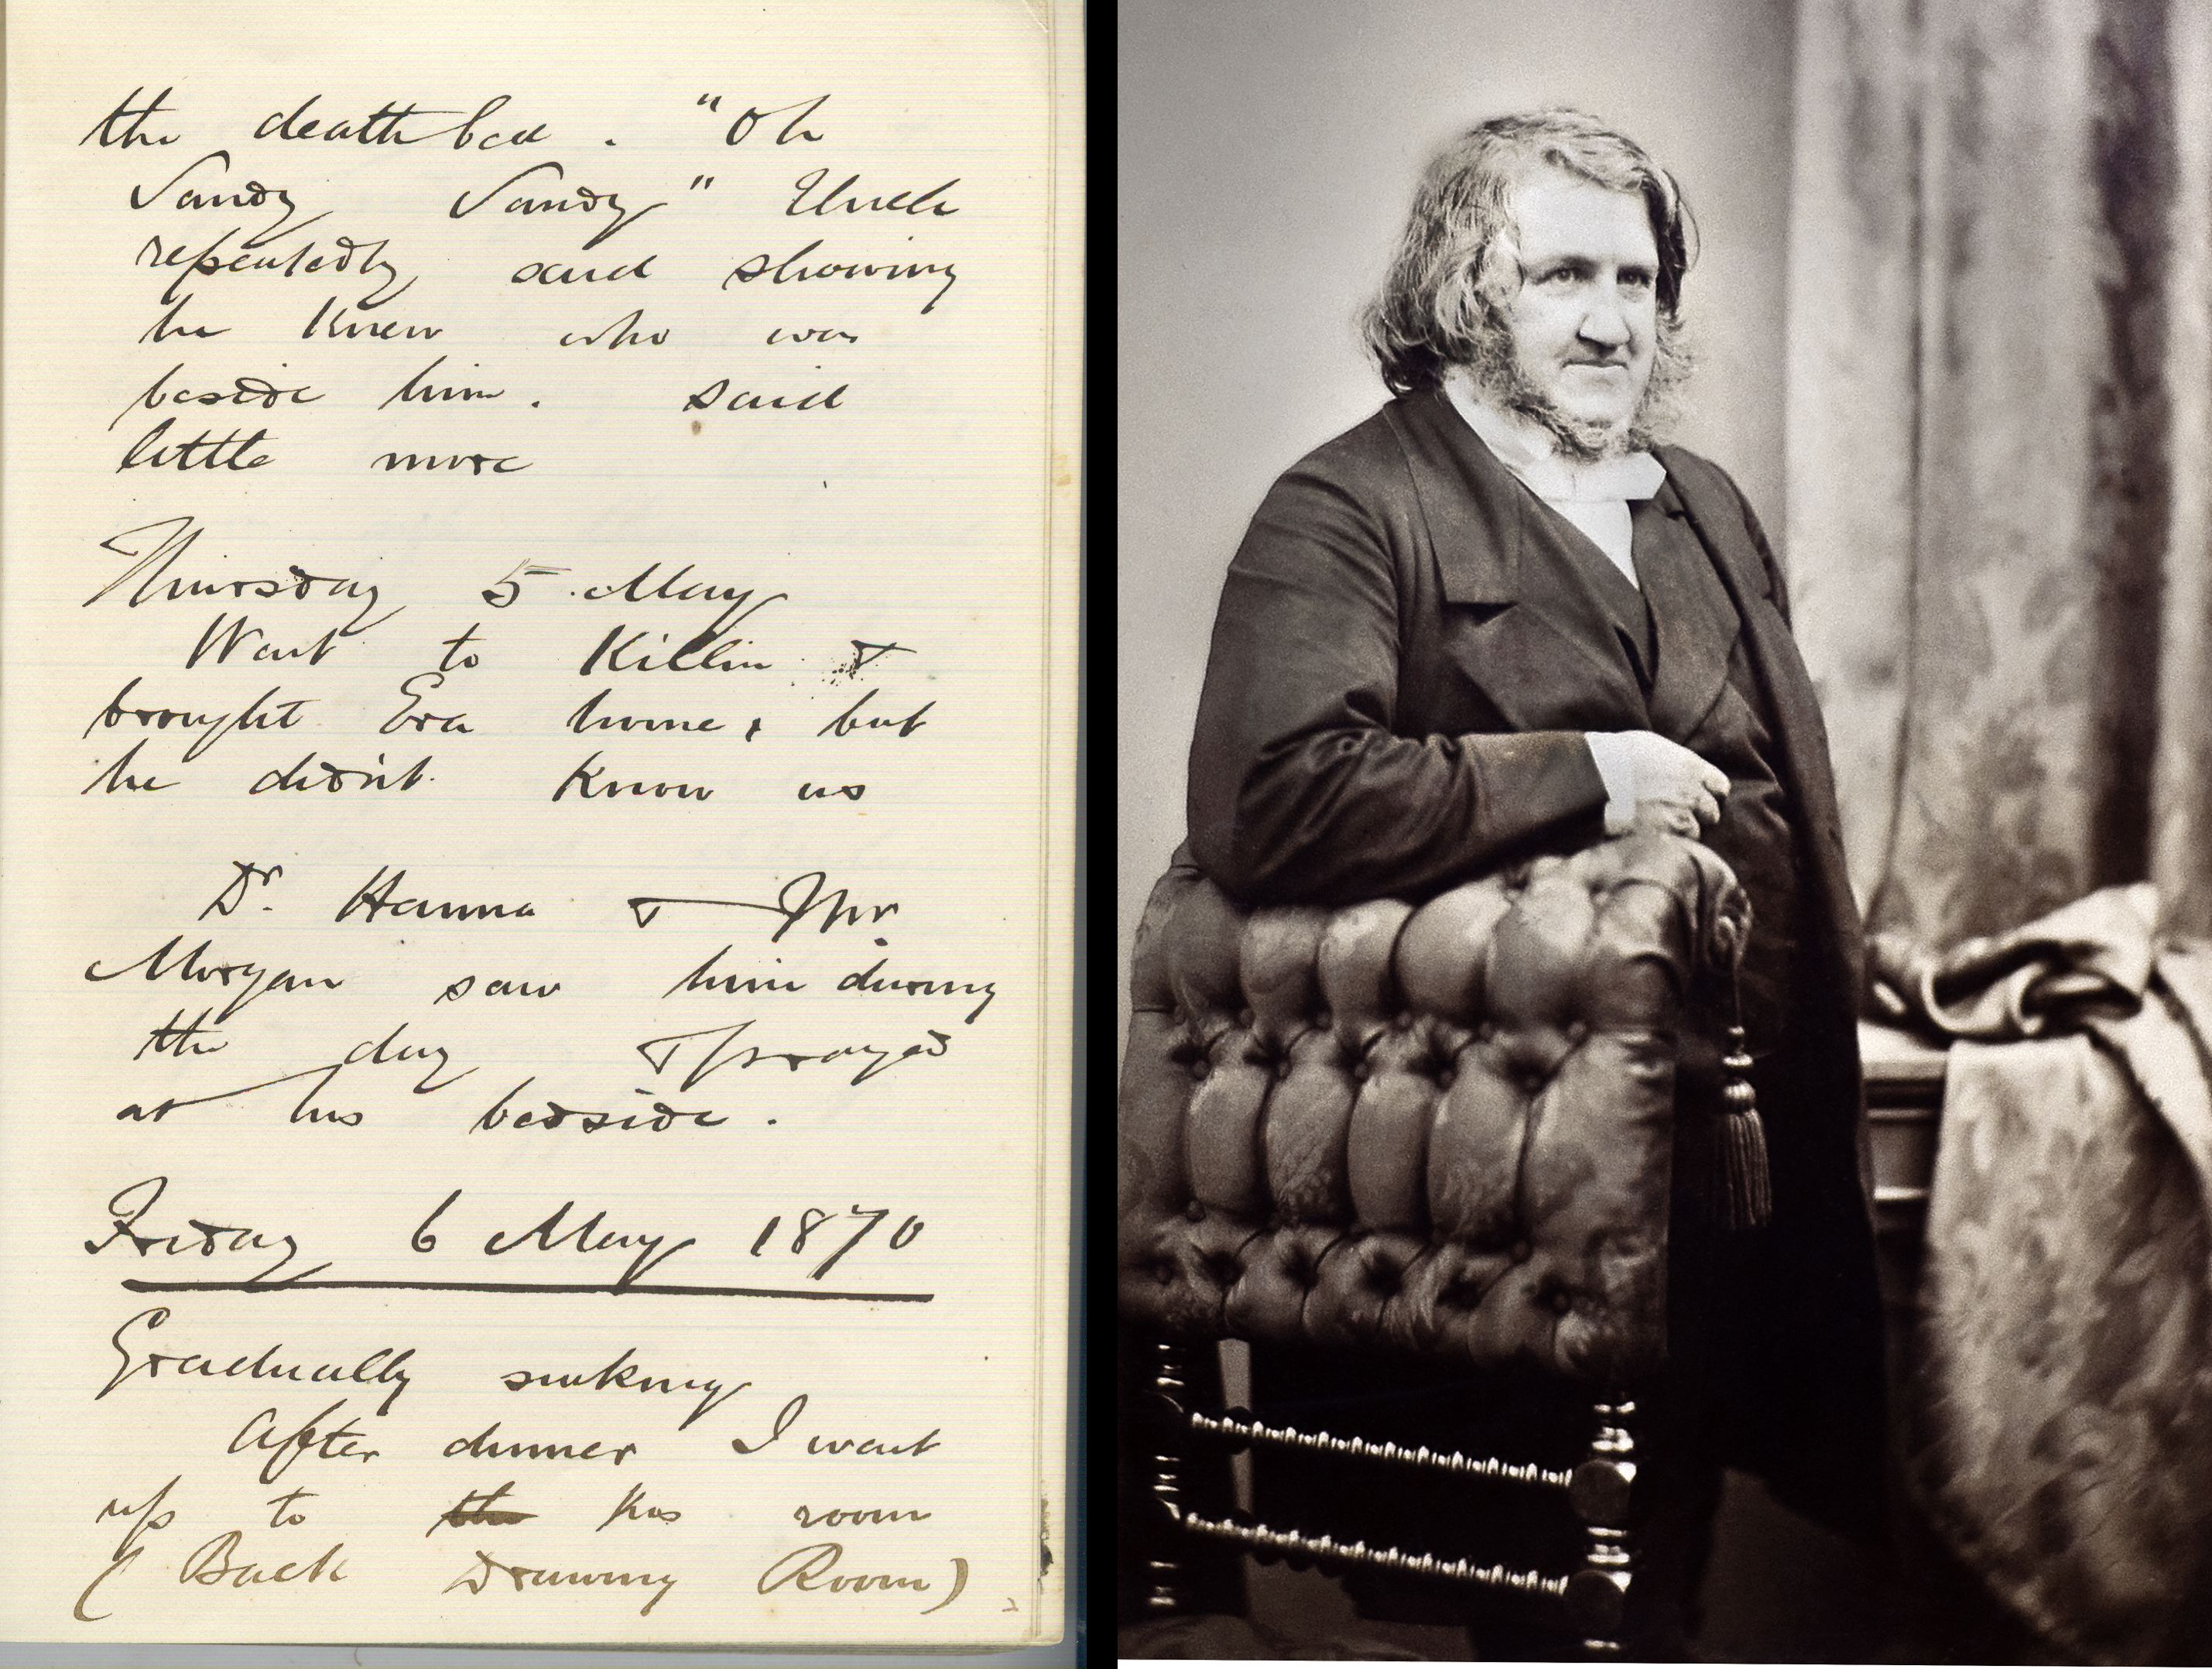 the deathbed. "Oh
Sandy Sandy" Uncle
repeatedly said showing
he knew who was
beside him. said
little more
Thursday 5 May
Went to Killin &
brought Eva home, but
he didn't know us
Dr. Hanna & Mr
Morgan saw him during
the day & prayed
at his bedside.
Friday 6 May 1870
Gradually sinking
After dinner I went
up to the his room
(Back Drawing Room)